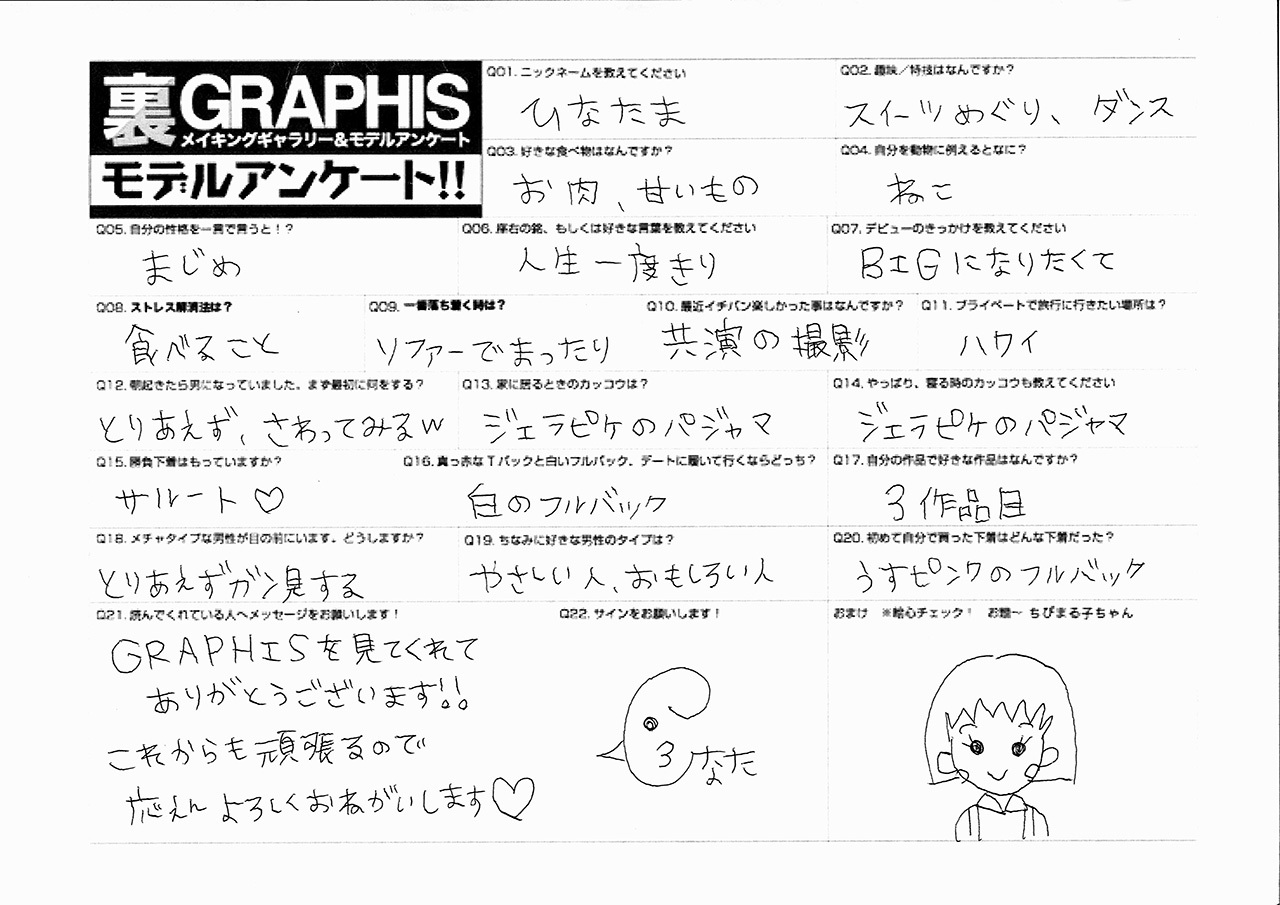 裏GRAPHIS
メイキングギャラリー&モデルアンケート
モデルアンケート!!
Q01. ニックネームを教えてください
ひなたま
Q02. 趣味／特技はなんですか？
スイーツめぐり、ダンス
Q03. 好きな食べ物はなんですか？
お肉、甘いもの
Q04. 自分を動物に例えるとなに？
ねこ
Q05. 自分の性格を一言で言うと！？
まじめ
Q06. 座右の銘、もしくは好きな言葉を教えてください
人生一度きり
Q07. デビューのきっかけを教えてください
BIGになりたくて
Q08. ストレス解消法は？
食べること
Q09. 一番落ち着く時は？
ソファーでまったり
Q10. 最近イチバン楽しかった事はなんですか？
共演の撮影
Q11. プライベートで旅行に行きたい場所は？
ハワイ
Q12. 朝起きたら男になっていました。まず最初に何をする？
とりあえず、さわってみるw
Q13. 家に居るときのカッコウは？
ジェラピケのパジャマ
Q14. やっぱり、寝る時のカッコウも教えてください
ジェラピケのパジャマ
Q15. 勝負下着はもっていますか？
サルート♡
Q16. 真っ赤なTバックと白いフルバック、デートに履いて行くならどっち？
白のフルバック
Q17. 自分の作品で好きな作品はなんですか？
3作品目
Q18. メチャタイプな男性が目の前にいます。どうしますか？
とりあえずガン見する
Q19. ちなみに好きな男性のタイプは？
やさしい人、おもしろい人
Q20. 初めて自分で買った下着はどんな下着だった？
うすピンクのフルバック
Q21. 読んでくれている人へメッセージをお願いします！
GRAPHISを見てくれて
ありがとうございます!!
これからも頑張るので
応えんよろしくおねがいします♡
Q22. サインをお願いします！
ひなた
おまけ　※絵心チェック！　お題〜 ちびまる子ちゃん